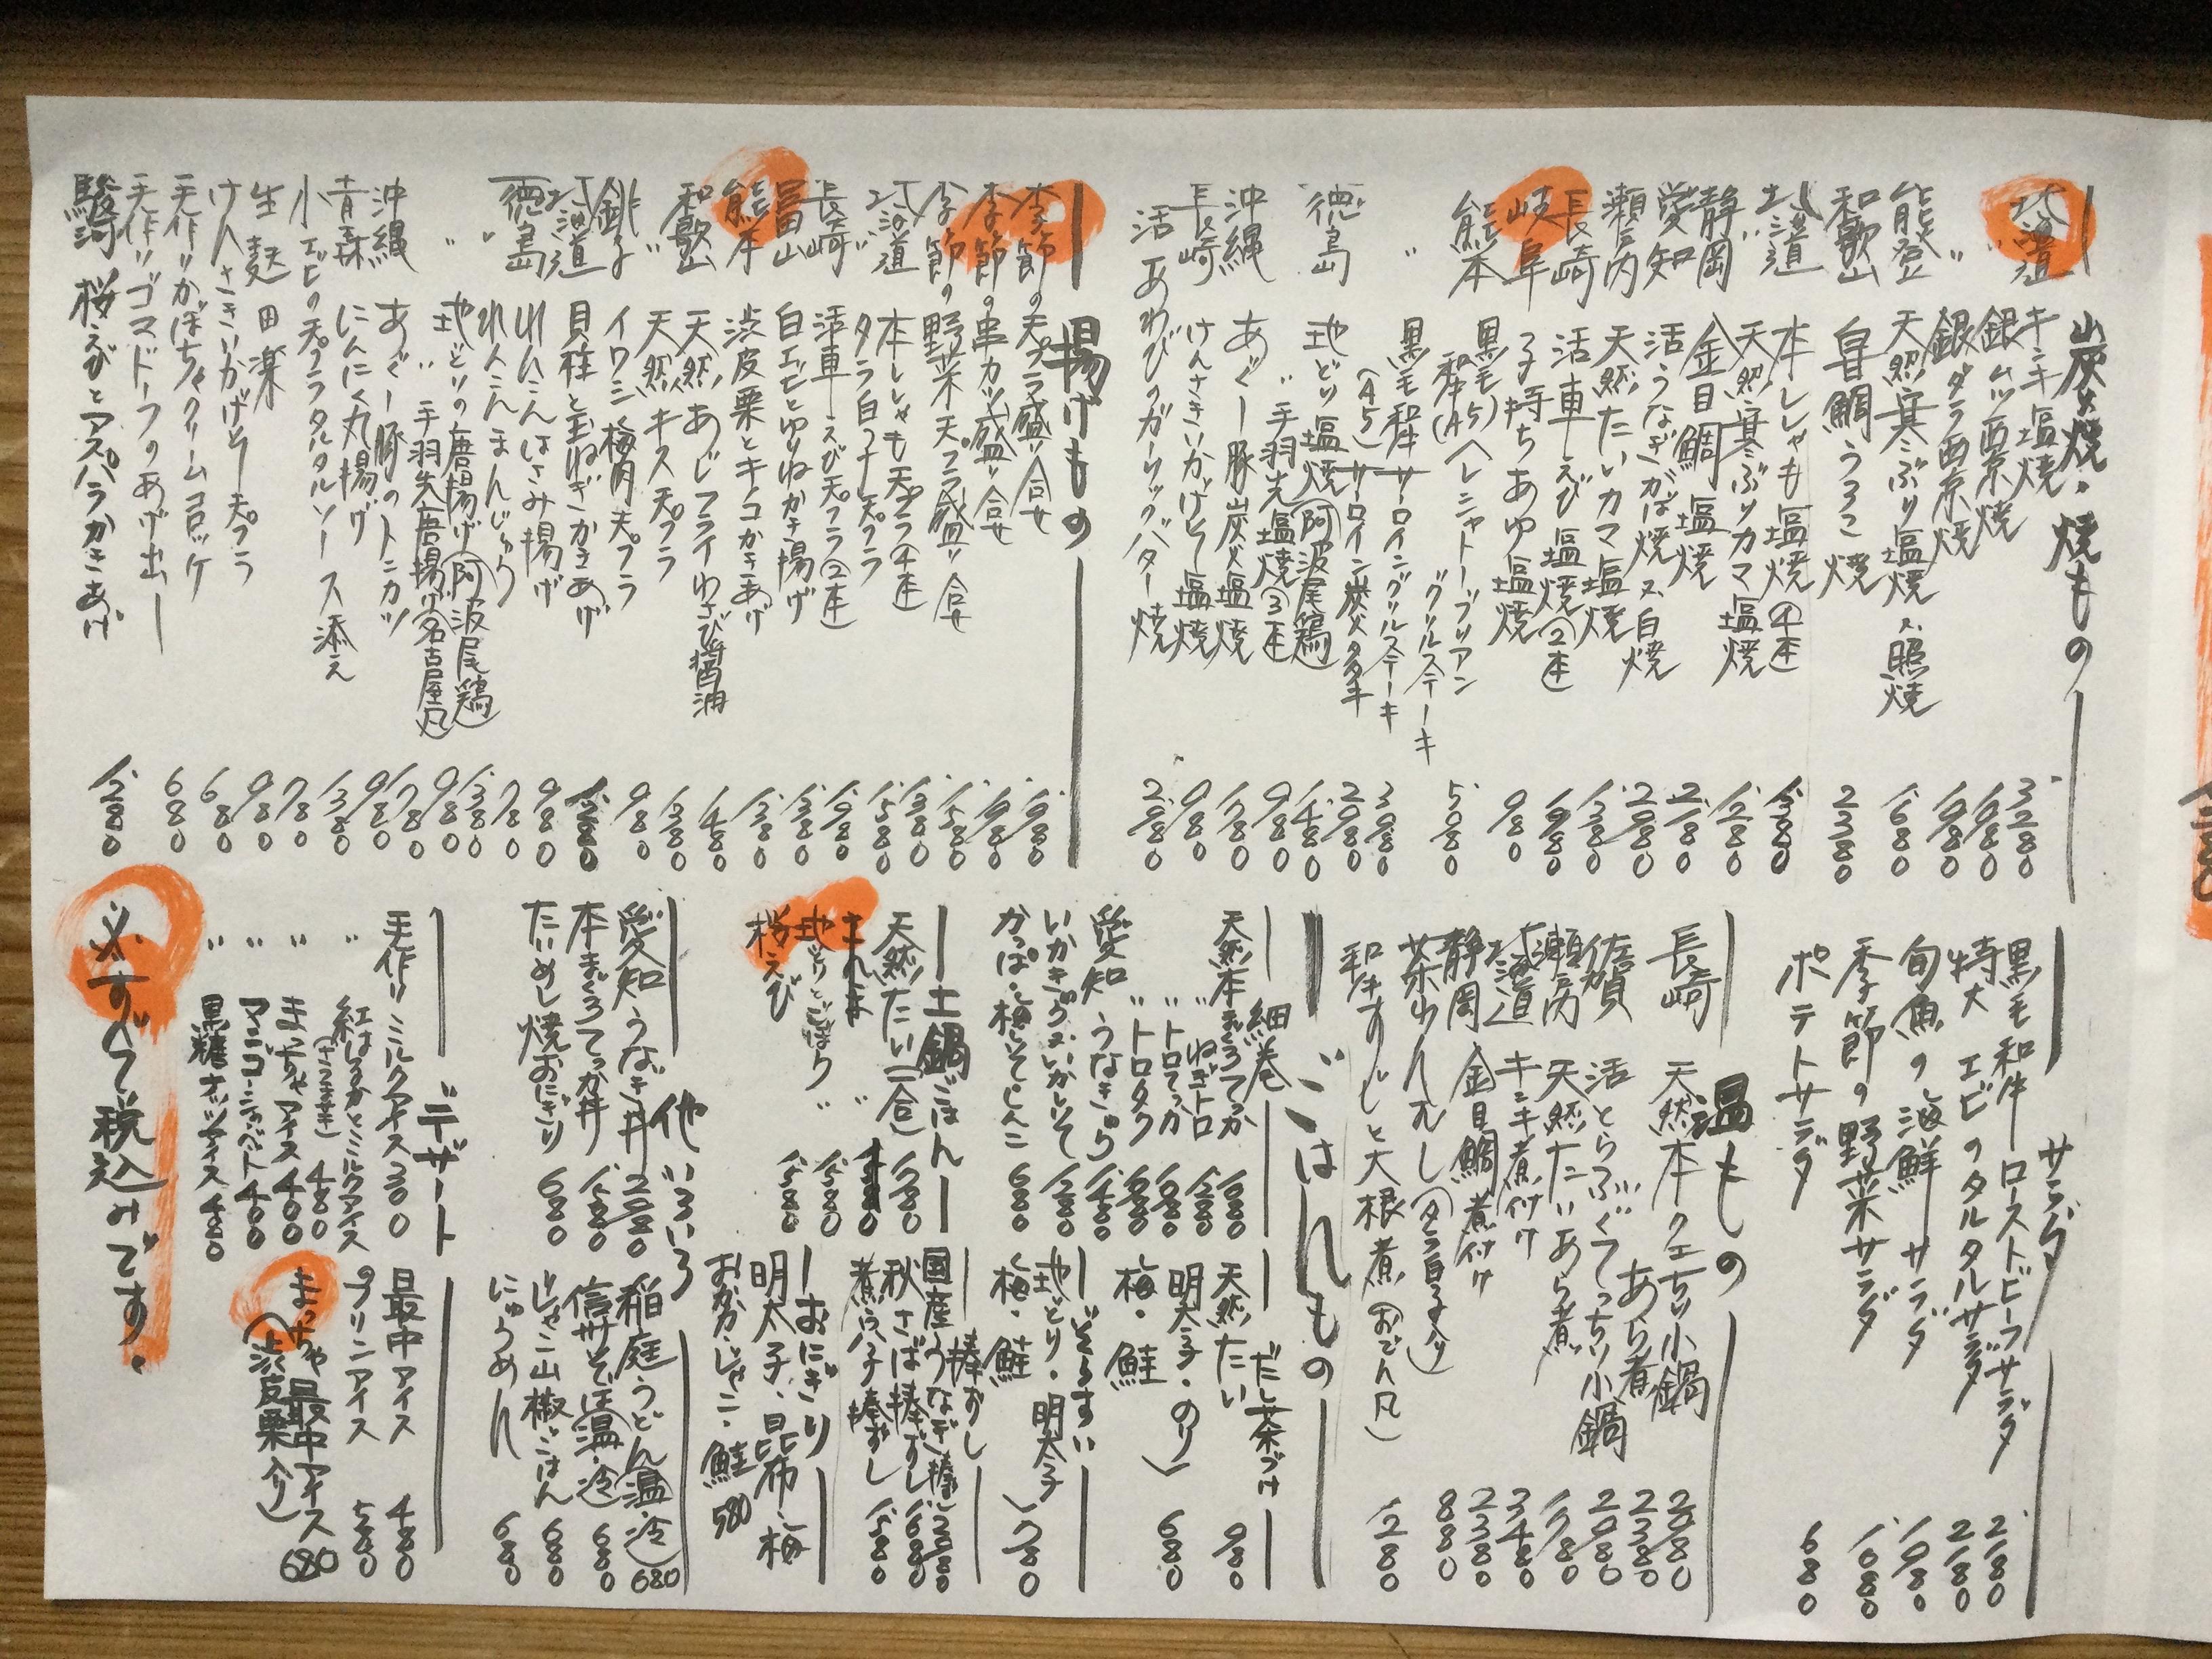 炭火焼・焼もの
北海道 キンキ塩焼 3,280
〃 銀ムツ西京焼 1,980
銀ダラ西京焼 1,980
能登 天然寒ぶり塩焼又照焼 1,680
和歌山 甘鯛うろこ焼 2,380
北海道 本ししゃも塩焼④本 1,380
〃 天然寒ぶりカマ塩焼 1,280
静岡 金目鯛塩焼 2,180
愛知 活うなぎかば焼又白焼 2,980
瀬戸内 天然たいカマ塩焼 1,380
長崎 活車えび塩焼②本 1,980
岐阜 子持ちあゆ塩焼 980
熊本 黒毛和牛(A5)ヘレシャトーブリアングリルステーキ 5,080
〃 黒毛和牛(A5)サーロイングリルステーキ 3,980
サーロイン炭火タタキ 2,980
徳島 地どり塩焼(阿波尾鶏) 1,480
〃 手羽先塩焼③本 980
沖縄 あぐー豚炭火塩焼 1,780
長崎 けんさきいかげそ塩焼 980
活あわびのガーリックバター焼 2,980
揚げもの
季節の天プラ盛り合せ 1,980
季節の串カツ盛り合せ 1,980
季節の野菜天プラ盛り合せ 1,580
北海道 本ししゃも天プラ④本 1,380
〃 タラ白子天プラ 1,580
長崎 活車えび天プラ②本 1,980
富山 白エビとゆりねかき揚げ 1,380
熊本 渋皮栗とキノコかきあげ 1,380
和歌山 天然あじフライわさび醤油 1,480
〃 天然キス天プラ 1,380
銚子 イワシ梅肉天プラ 980
北海道 貝柱と玉ねぎかきあげ 1,280
徳島 れんこんはさみ揚げ 980
〃 れんこんまんじゅう 780
〃 地どりの唐揚げ(阿波尾鶏) 1,380
〃 手羽先唐揚げ(名古屋風) 980
沖縄 あぐー豚のトンカツ 1,780
青森 にんにく丸揚げ 980
小エビの天プラタルタルソース添え 1,380
生麩田楽 780
けんさきいかげそ天プラ 980
手作りかぼちゃクリームコロッケ 680
手作りゴマドーフのあげ出し 680
駿河 桜えびとアスパラかきあげ 1,280
サラダ
黒毛和牛ローストビーフサラダ 2,180
特大エビのタルタルサラダ 2,180
旬魚の海鮮サラダ 1,980
季節の野菜サラダ 1,080
ポテトサラダ 680
温もの
長崎 天然本クエちり小鍋 2,980
あら煮 2,380
佐賀 活とらふぐてっちり小鍋 2,980
瀬戸内 天然たいあら煮 1,780
北海道 キンキ煮付け 3,480
静岡 金目鯛煮付け 2,380
茶わんむし(タラ白子入り) 880
和牛すじと大根煮(おでん風) 1,280
ごはんもの
細巻
天然本まぐろてっか 1,080
〃 ねぎトロ 1,280
〃 トロてっか 1,680
〃 トロタク 1,680
愛知 うなきゅう 1,480
いかきゅう・いかしそ 1,280
かっぱ・梅しそ・しんこ 680
だし茶づけ
天然たい 980
明太子・のり
梅・鮭 680
ぞうすい
地どり・明太子
梅・鮭 780
土鍋ごはん
天然たい(一合) 1,780
さんま 〃
地どりとごぼう 〃 1,580
桜えび 1,580
棒ずし
国産うなぎ棒ずし 2,880
秋さば棒ずし 1,680
煮穴子棒ずし 1,580
おにぎり
明太子・昆布・梅
おかか・じゃこ・鮭 580
他いろいろ
愛知 うなぎ丼 2,980
本まぐろてっか丼 1,580
たいめし焼おにぎり 680
稲庭うどん(温・冷) 680
信州そば(温・冷) 680
じゃこ山椒ごはん 680
にゅうめん 680
デザート
手作りミルクアイス 300
〃 紅はるかとミルクアイス(さつま芋) 480
〃 まっちゃアイス 400
〃 マンゴーシャーベット 400
〃 黒糖ナッツアイス 480
最中アイス 480
プリンアイス 580
まっちゃ最中アイス(渋皮栗入り) 680
※すべて税込みです。